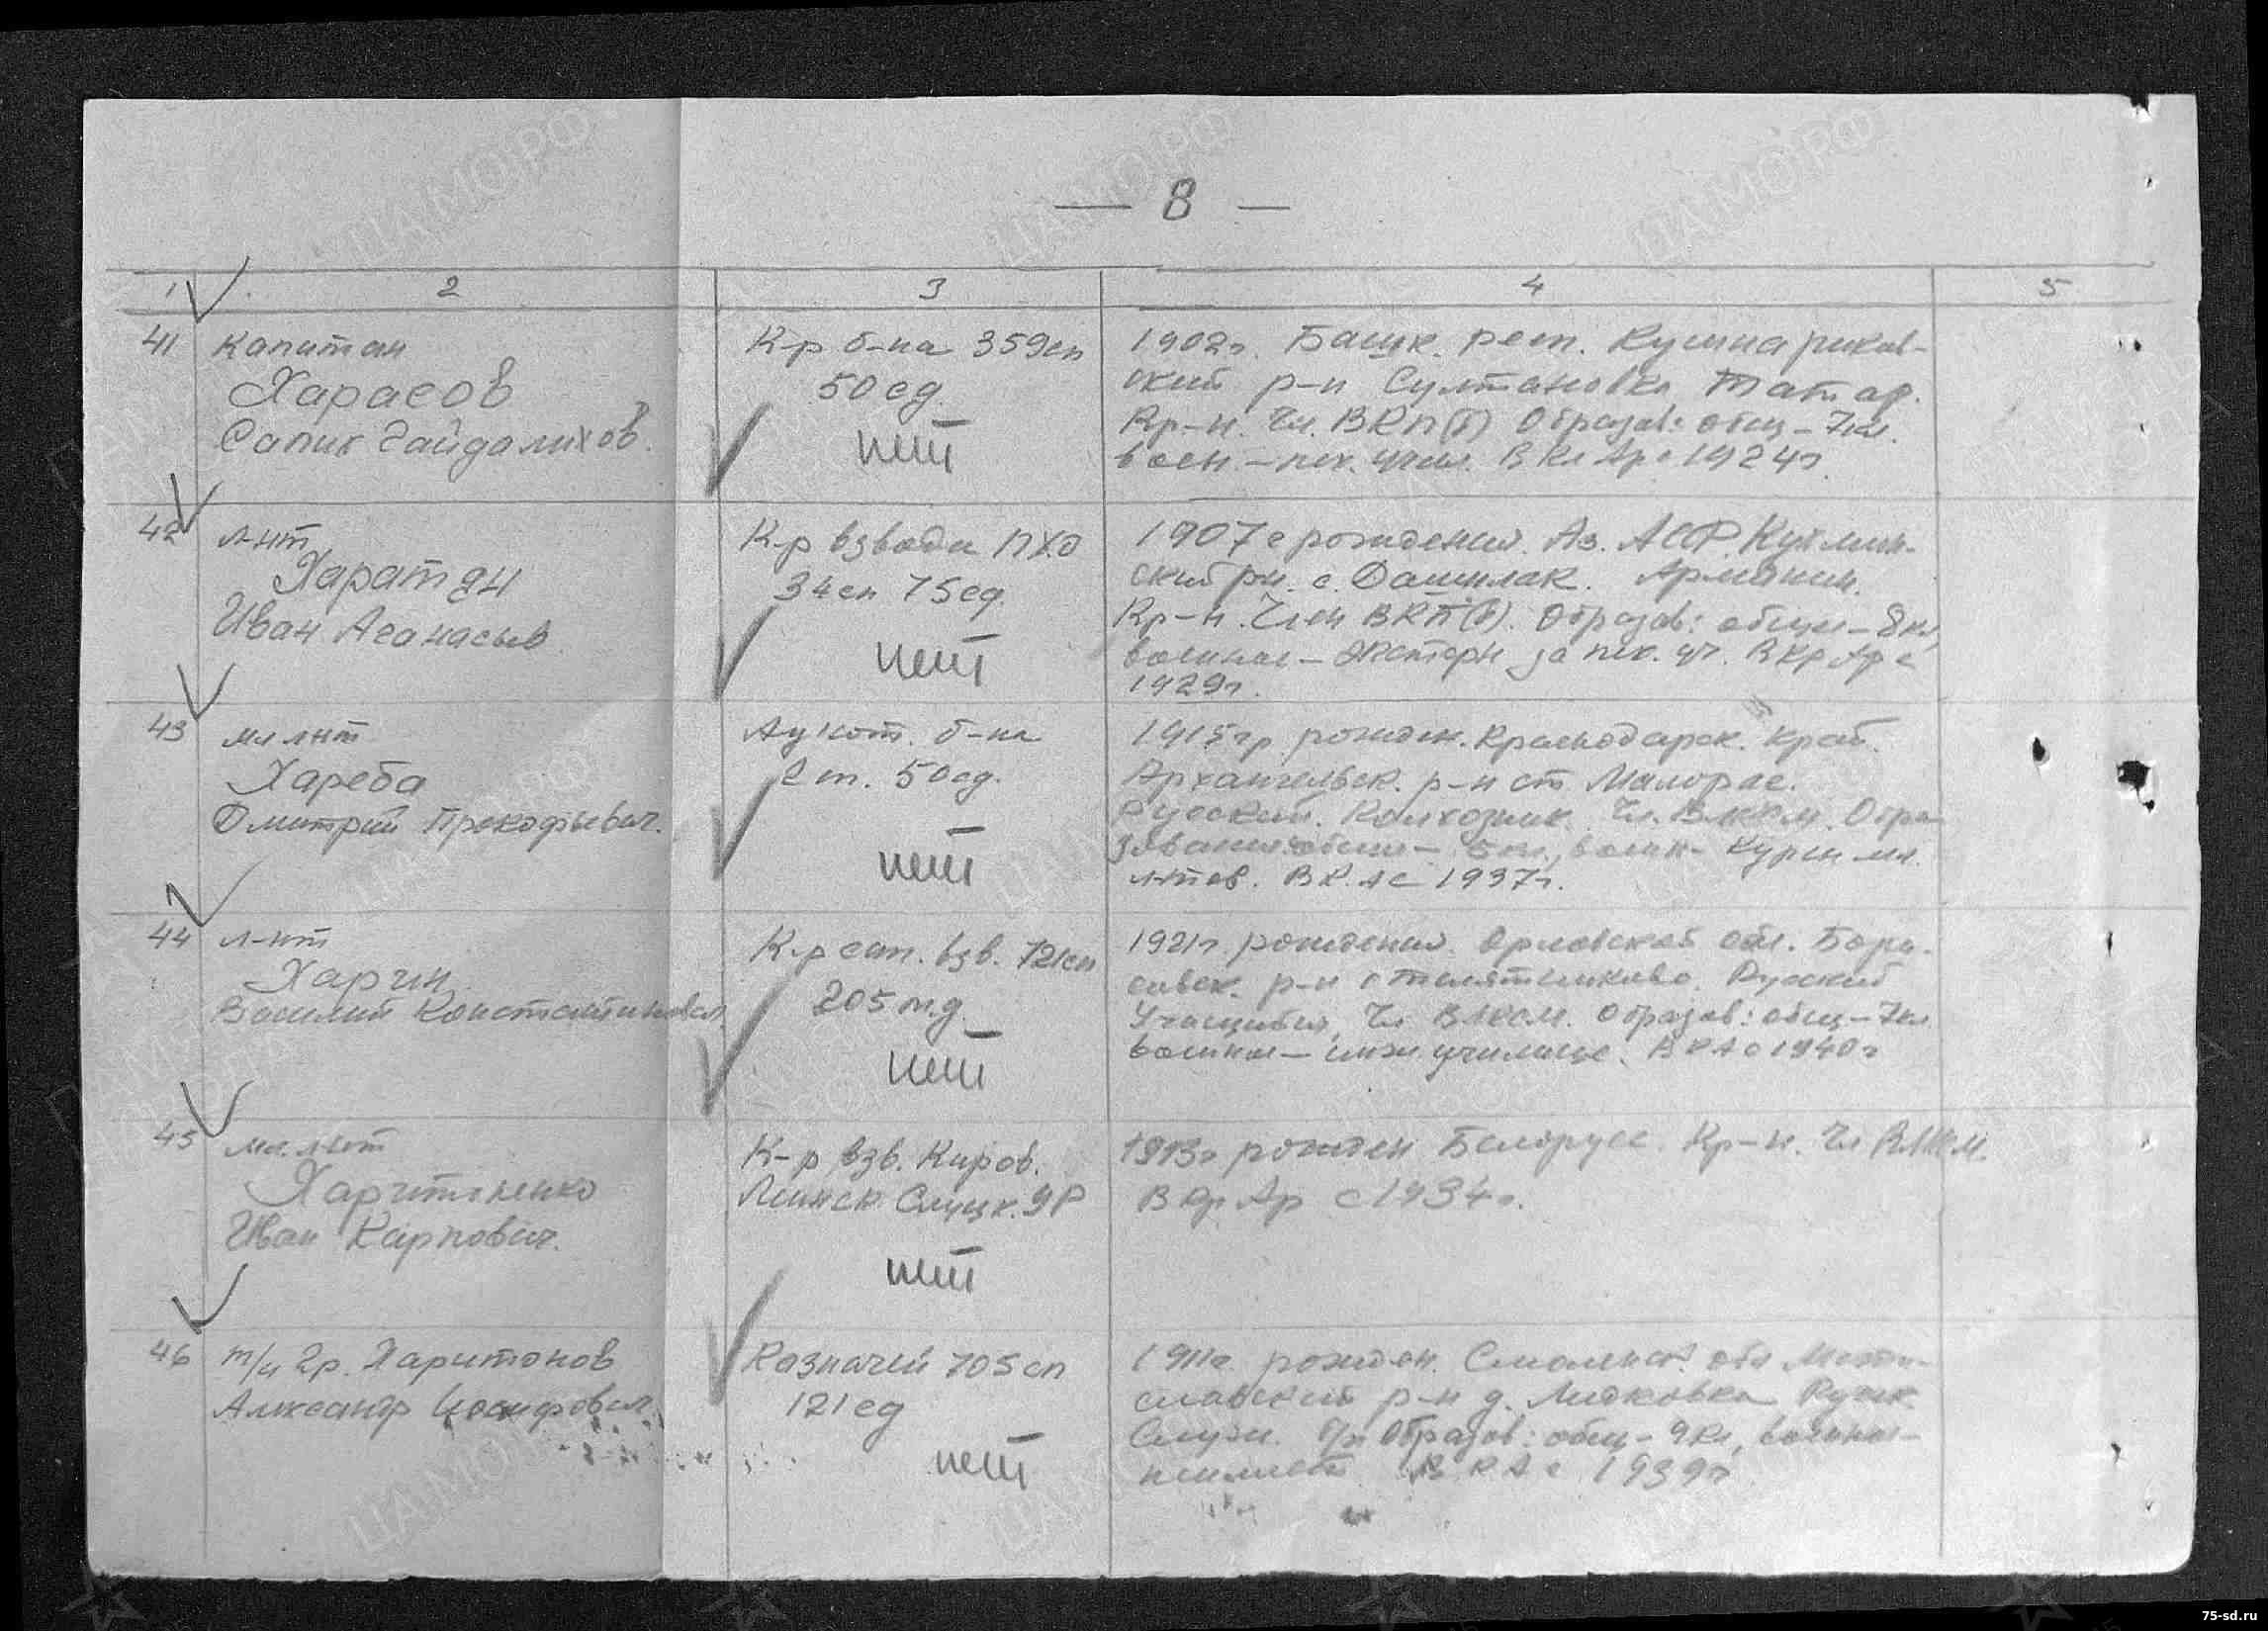 — 8 —
1 2 3 4 5
41 Капитан
Харасов
Сапик Гайдалихов.
К-р б-на 359сп
50сд.
нет
1902г. Башк. респ. Кушнариков-
ский р-н Султановка Татар.
Кр-н. Чл. ВКП(б) Образов: общ – 7кл.
воен. – пех. учил. В Кр Ар с 1924г
42 л-нт
Харатян
Иван Асанасьев
К-р взвода ПХО
34сп 75сд.
нет
1907г рождения. Аз. АССР.
ский рн. с. Дашплак. Армянин.
Кр-н. Член ВКП(б). Образов: общее – 8кл,
военное – экстерн за пех. уч. В Кр Ар с
1929г.
43 мл лнт
Хареба
Дмитрий Прокофьевич.
Адъют. б-на
2сп. 50сд.
нет
1915гр рожден. Краснодарск. край.
Архангельск. р-н ст Малорос.
Русский. Колхозник. Чл. ВЛКСМ. Обра-
зование: общее – 5кл., воен – Курсы мл.
л-тов. В К. А с 1937г.
44 л-нт
Харчин
Василий Константинович
К-р сап. взв. 721сп
205м.д.
нет
1921г. рождения. Орловской обл. Бори-
совск. р-н с Телятниково. Русский
Учащийся, Чл ВЛКСМ. Образов: общ – 7кл
военное – инж. училище. В К А с 1940г
45 мл. л-нт
Харитоненко
Иван Карпович.
К-р взв. Киров.
Минск. Слуцк. УР
нет
1913г рожден Белорусс. Кр-н. Чл ВЛКСМ.
В Кр Ар с 1934г.
46 т/и 2р. Харитонов
Александр Иосифович
Казначей 705сп
121сд
нет
1911г. рожден. Смоленск. обл Мсти-
славский р-н д. Русск.
Служ. б/п Образов: общ – 9кл, военное –
не имеет В К А с 1939г
ЦАМО.РФ
75-sd.ru